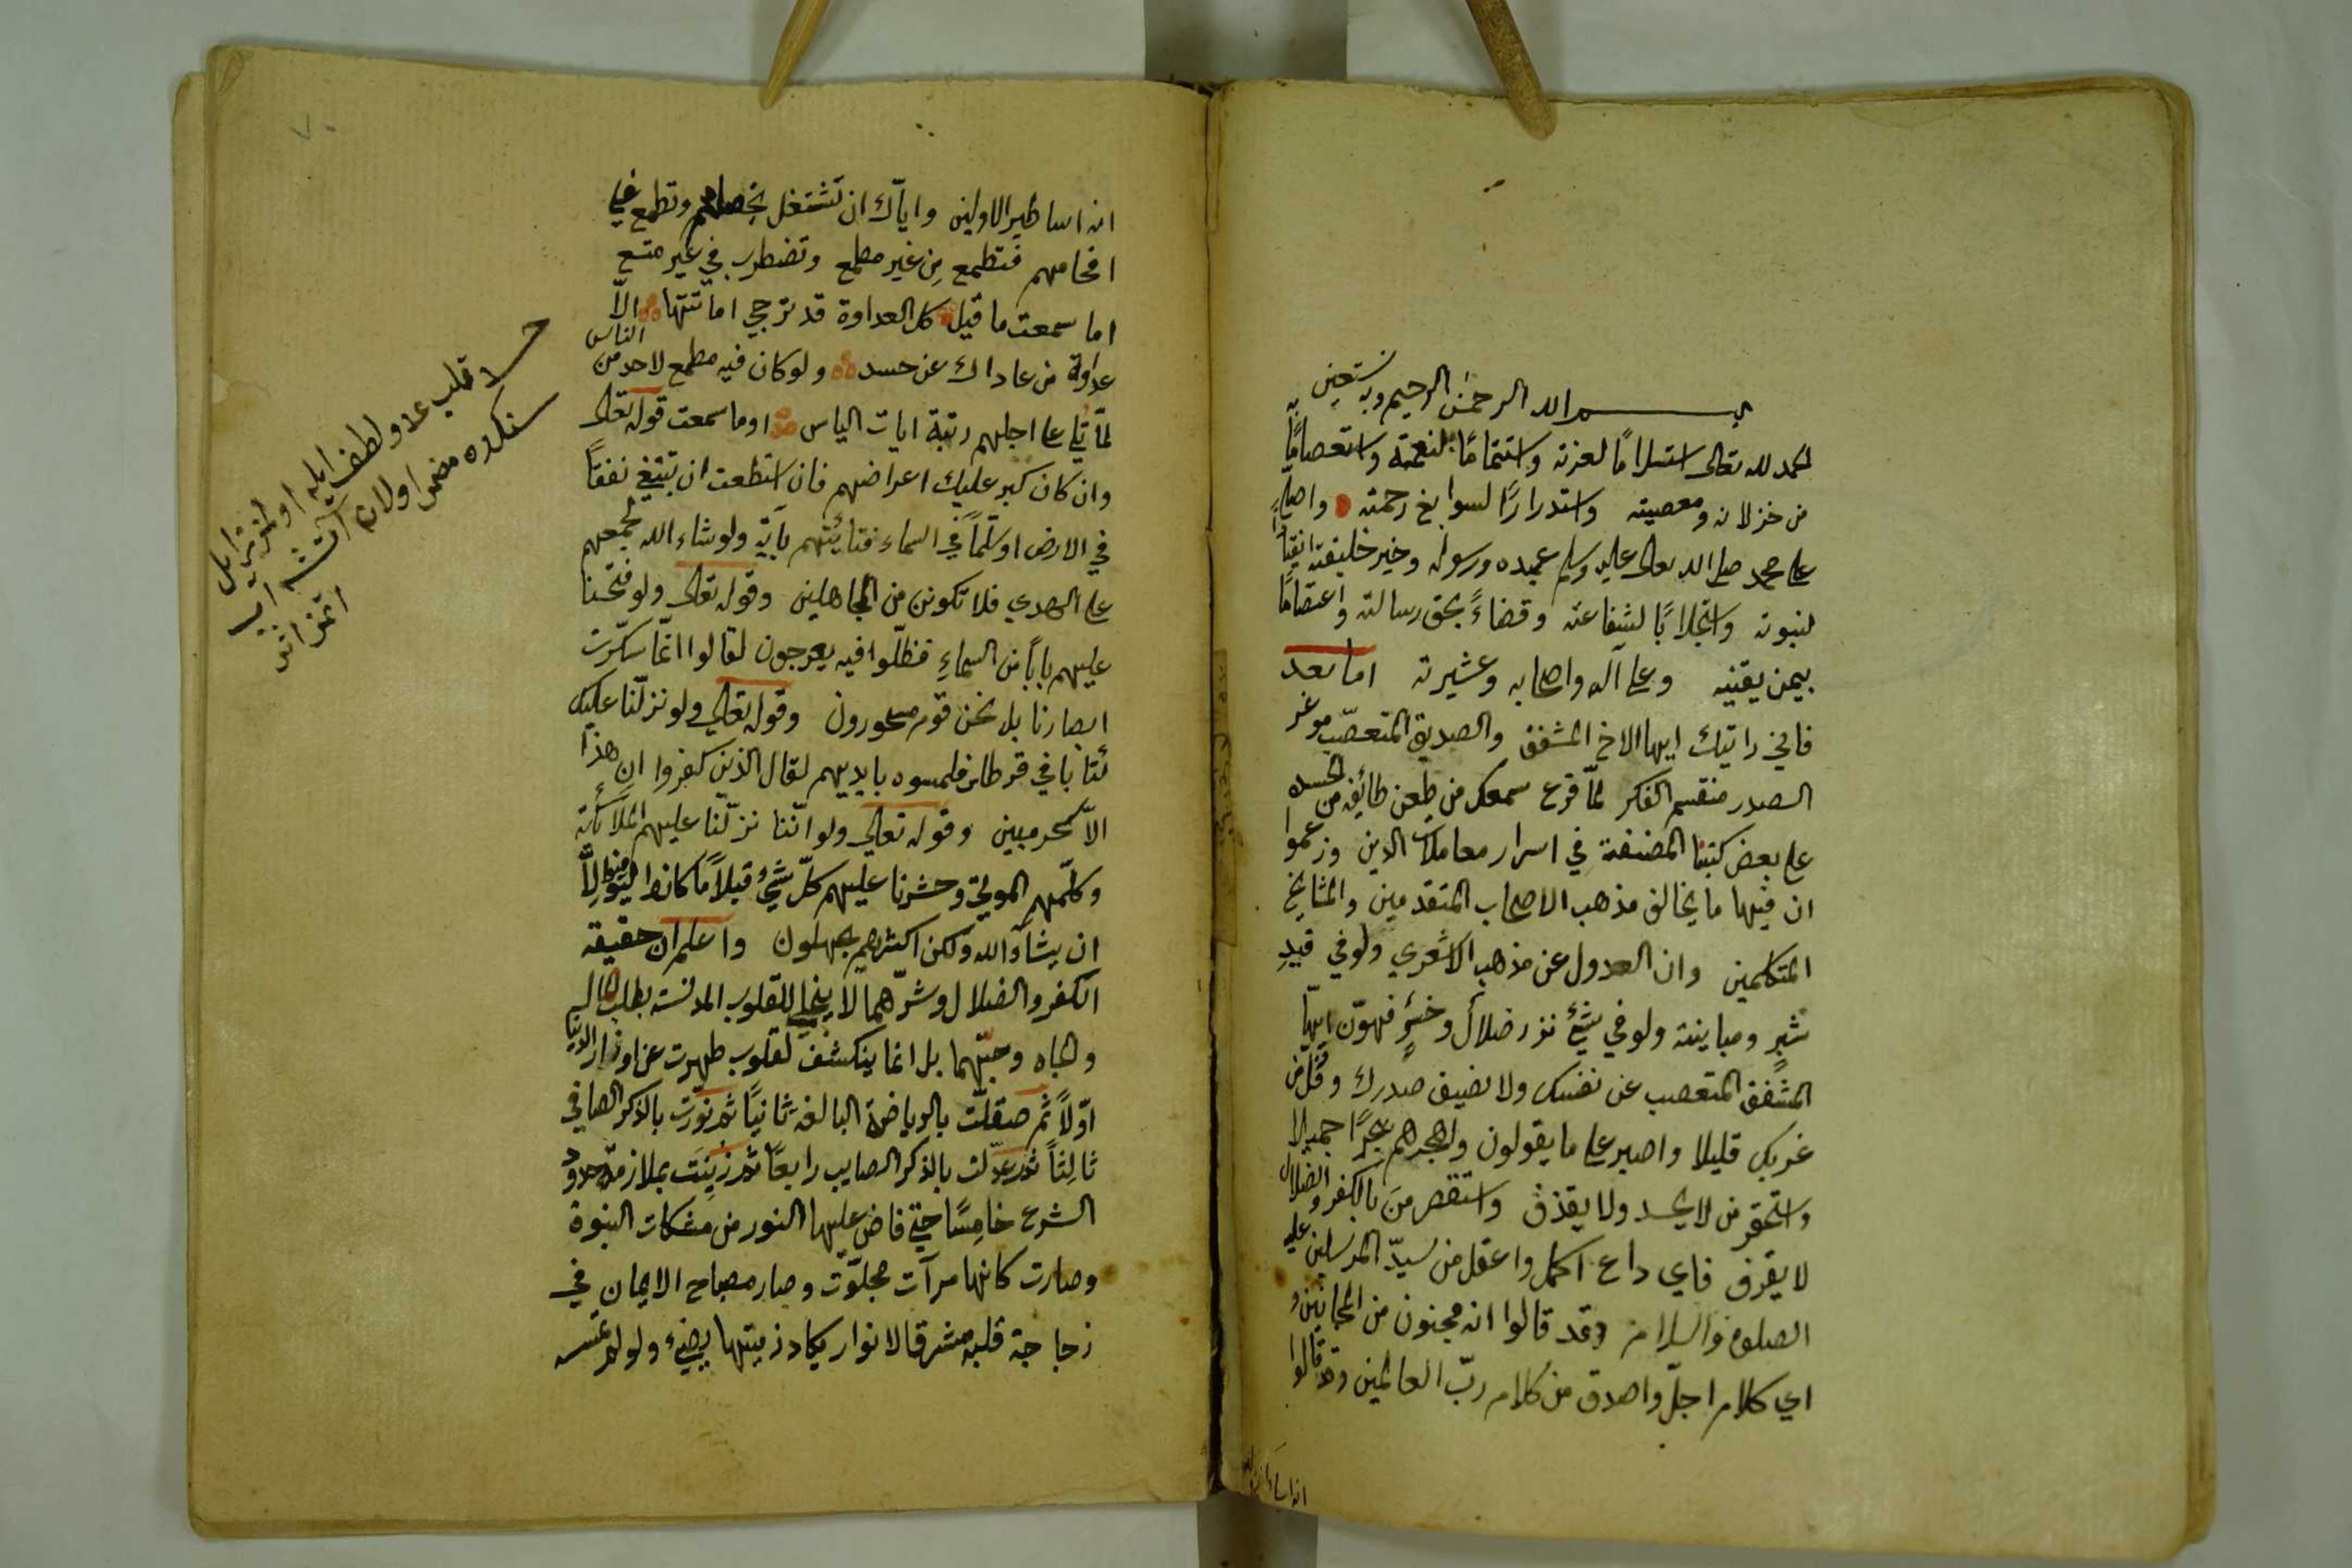 بسم الله الرحمن الرحيم وبه نستعين
الحمد لله تعالى استسلاما لعزته واستتماما لنعمته واستعصاما به
من خزلانه ومعصيته واستدرارا لسوابغ رحمته واصلي
على محمد صلى الله تعالى عليه وسلم عبده ورسوله وخير خليقته انقيادا
لنبوته واستجلابا لشفاعته وقضاء بحق رسالته واعتصاما
بيمن يقينه وعلى آله واصحابه وعشيرته اما بعد
فاني رايتك ايها الاخ المشفق والصديق المتعصب موغر
الصدر منقسم الفكر لما قرع سمعك من طعن طائفة من الحسدة
على بعض كتبنا المصنفة في اسرار معاملات الدين وزعموا
ان فيها ما يخالف مذهب الاصحاب المتقدمين والمشايخ
المتكلمين وان العدول عن مذهب الاشعري ولو في قيد
شبر ومباينته ولو في شئ نزر ضلال وخسر فهون ايها
المشفق المتعصب عن نفسك ولا تضيق صدرك وفل من
غربك قليلا واصبر على ما يقولون واهجرهم هجرا جميلا
واستحقر من لا يحسد ولا يقذف واستقصر من بالكفر والضلال
لا يقرف فاي داع اكمل واعقل من سيد المرسلين عليه
الصلوة والسلام وقد قالوا انه مجنون من المجانين و
اي كلام اجل واصدق من كلام رب العالمين وقد قالوا
انه اساطير الاولين واياك ان تشتغل بخصامهم وتطمع في
افحامهم فتطمع من غير مطمع وتضطرب في غير متسع
اما سمعت ما قيل كل العداوة قد ترجي اماتتها الا
عداوة من عاداك عن حسد ولو كان فيه مطمع لاحد من الناس
لما تلي على اجلهم رتبة ايات الياس اوما سمعت قوله تعالى
وان كان كبر عليك اعراضهم فان استطعت ان تبتغي نفقا
في الارض او سلما في السماء فتأتيهم بآية ولو شاء الله لجمعهم
على الهدي فلا تكونن من الجاهلين وقوله تعالى ولو فتحنا
عليهم بابا من السماء فظلوا فيه يعرجون لقالوا انما سكرت
ابصارنا بل نحن قوم مسحورون وقوله تعالى ولو نزلنا عليك
كتابا في قرطاس فلمسوه بايديهم لقال الذين كفروا ان هذا
الا سحر مبين وقوله تعالي ولو اننا نزلنا عليهم الملائكة
وكلمهم الموتي وحشرنا عليهم كل شئ قبلا ما كانوا ليؤمنوا الا
ان يشاء الله ولكن اكثرهم يجهلون واعلم ان حقيقة
الكفر والضلال وشرهما لا ينجلي للقلوب المدنسة بطلب المال
والجاه وحبهما بل انما ينكشف لقلوب طهرت عن اوزار الدنيا
اولا ثم صقلت بالرياضة البالغة ثانيا ثم نورت بالذكر الصافي
ثالثا ثم عدلت بالذكر الصايب رابعا ثم زينت بملازمة حدود
الشرع خامسا حتي فاض عليها النور من مشكات النبوة
وصارت كانها مرآت مجلوت وصار مصباح الايمان في
زجاجة قلبه مشرق الانوار يكاد زيتها يضئ ولو لم تمسسه